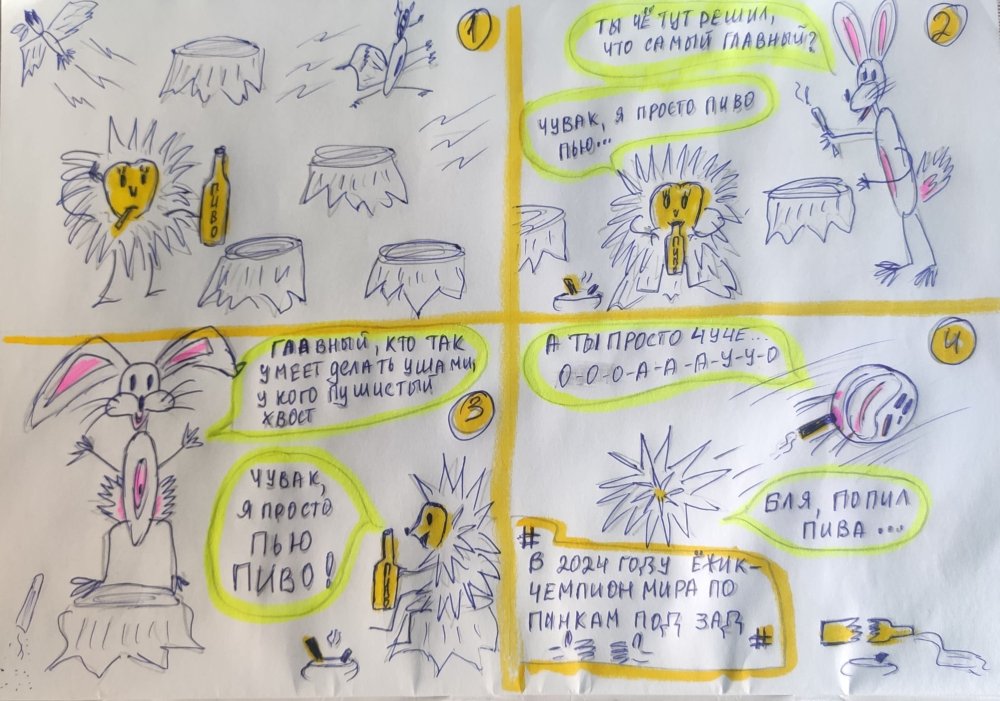 1
ПИВО
2
ТЫ ЧЁ ТУТ РЕШИЛ,
ЧТО САМЫЙ ГЛАВНЫЙ?
ЧУВАК, Я ПРОСТО ПИВО
ПЬЮ...
ПИВО
3
ГЛАВНЫЙ, КТО ТАК
УМЕЕТ ДЕЛАТЬ УШАМИ,
У КОГО ПУШИСТЫЙ
ХВОСТ
ЧУВАК,
Я ПРОСТО
ПЬЮ
ПИВО!
4
А ТЫ ПРОСТО ЧУЧЕ...
О-О-О-А-А-А-У-У-О
БЛЯ, ПОПИЛ
ПИВА...
#
В 2024 ГОДУ ЁЖИК-
ЧЕМПИОН МИРА ПО
ПИНКАМ ПОД ЗАД
#